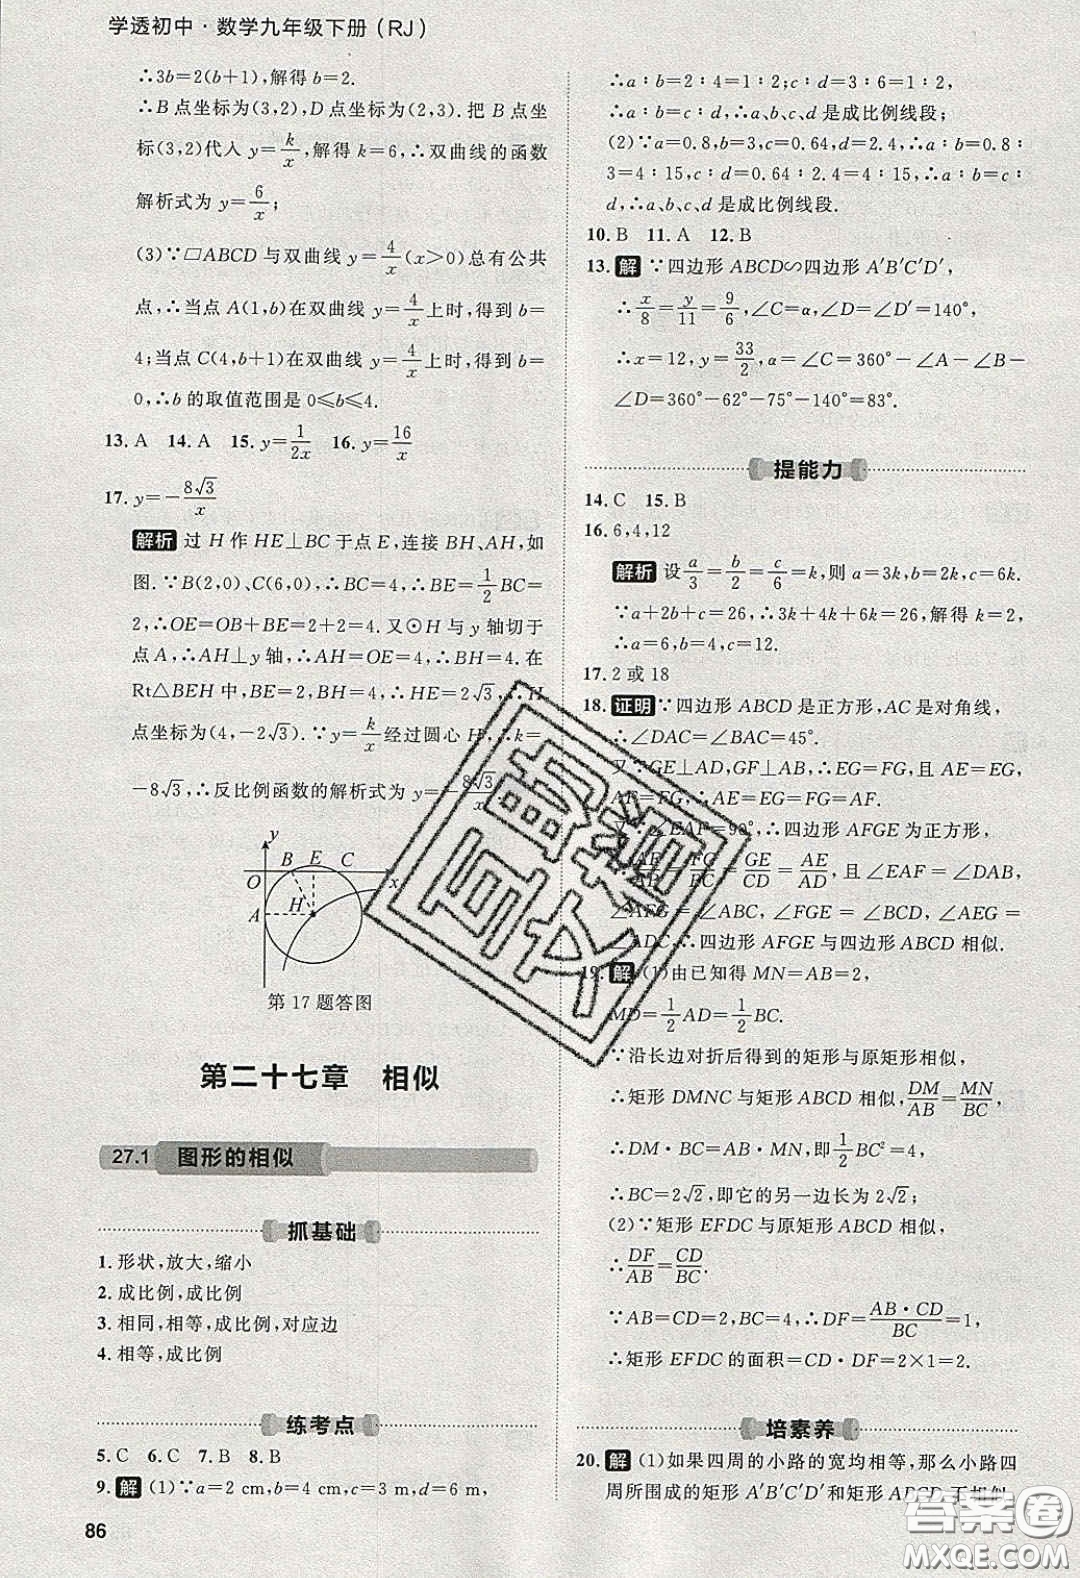 学透初中·数学九年级下册(RJ)
∴3b=2(b+1),解得b=2.
∴B点坐标为(3,2),D点坐标为(2,3).把B点坐
标(3,2)代入y=k/x,解得k=6,∴双曲线的函数
解析式为y=6/x;
(3)∵▱ABCD与双曲线y=4/x(x>0)总有公共
点,∴当点A(1,b)在双曲线y=4/x上时,得到b=
4;当点C(4,b+1)在双曲线y=4/x上时,得到b=
0,∴b的取值范围是0≤b≤4.
13.A 14.A 15.y=1/2x 16.y=16/x
17.y=-8√3/x
解析 过H作HE⊥BC于点E,连接BH、AH,如
图.∵B(2,0)、C(6,0),∴BC=4,∴BE=1/2BC=
2,∴OE=OB+BE=2+2=4.又⊙H与y轴切于
点A,∴AH⊥y轴,∴AH=OE=4,∴BH=4.在
Rt△BEH中,BE=2,BH=4,∴HE=2√3,∴H
点坐标为(4,-2√3).∵y=k/x经过圆心H,∴k=
-8√3,∴反比例函数的解析式为y=-8√3/x.
y
B E C
O x
H
A
第17题答图
第二十七章 相似
27.1 图形的相似
抓基础
1.形状,放大,缩小
2.成比例,成比例
3.相同,相等,成比例,对应边
4.相等,成比例
练考点
5.C 6.C 7.B 8.B
9.解 (1)∵a=2 cm,b=4 cm,c=3 m,d=6 m,
86
∴a∶b=2∶4=1∶2;c∶d=3∶6=1∶2,
∴a∶b=c∶d,∴a、b、c、d是成比例线段;
(2)∵a=0.8,b=3,c=0.64,d=2.4,∴a∶b=0.8∶
3=4∶15,c∶d=0.64∶2.4=4∶15,∴a∶b=c∶
d,∴a、b、c、d是成比例线段.
10.B 11.A 12.B
13.解 ∵四边形ABCD∽四边形A′B′C′D′,
∴x/8=y/11=9/6,∠C=α,∠D=∠D′=140°,
∴x=12,y=33/2,α=∠C=360°-∠A-∠B-
∠D=360°-62°-75°-140°=83°.
提能力
14.C 15.B
16.6,4,12
解析 设a/3=b/2=c/6=k,则a=3k,b=2k,c=6k.
∵a+2b+c=26,∴3k+4k+6k=26,解得k=2,
∴a=6,b=4,c=12.
17.2或18
18.证明 ∵四边形ABCD是正方形,AC是对角线,
∴∠DAC=∠BAC=45°.
又∵GE⊥AD,GF⊥AB,∴EG=FG,且AE=EG,
AF=FG,∴AE=EG=FG=AF.
又∵∠EAF=90°,∴四边形AFGE为正方形,
∴AF/AB=FG/BC=GE/CD=AE/AD,且∠EAF=∠DAB,
∠AFG=∠ABC,∠FGE=∠BCD,∠AEG=
∠ADC,∴四边形AFGE与四边形ABCD相似.
19.解 (1)由已知得MN=AB=2,
MD=1/2AD=1/2BC.
∵沿长边对折后得到的矩形与原矩形相似,
∴矩形DMNC与矩形ABCD相似,DM/AB=MN/BC,
∴DM·BC=AB·MN,即1/2BC²=4,
∴BC=2√2,即它的另一边长为2√2;
(2)∵矩形EFDC与原矩形ABCD相似,
∴DF/AB=CD/BC.
∵AB=CD=2,BC=4,∴DF=AB·CD/BC=1,
∴矩形EFDC的面积=CD·DF=2×1=2.
培素养
20.解 (1)如果四周的小路的宽均相等,那么小路四
周所围成的矩形A′B′C′D′和矩形ABCD不相似.
答案圈
MXQE.COM